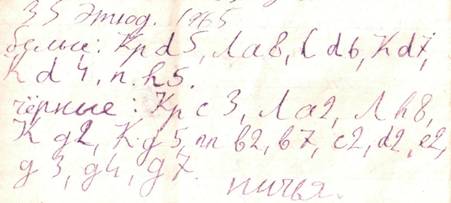 35 Этюд. 1965
белые: Кр d5, Ла8, С d6, К d7,
К d4, п. h5.
чёрные: Кр с3, Л а2, Л h8,
К g2, К g5, пп b2, b7, c2, d2, e2,
g3, g4, g7. ничья.